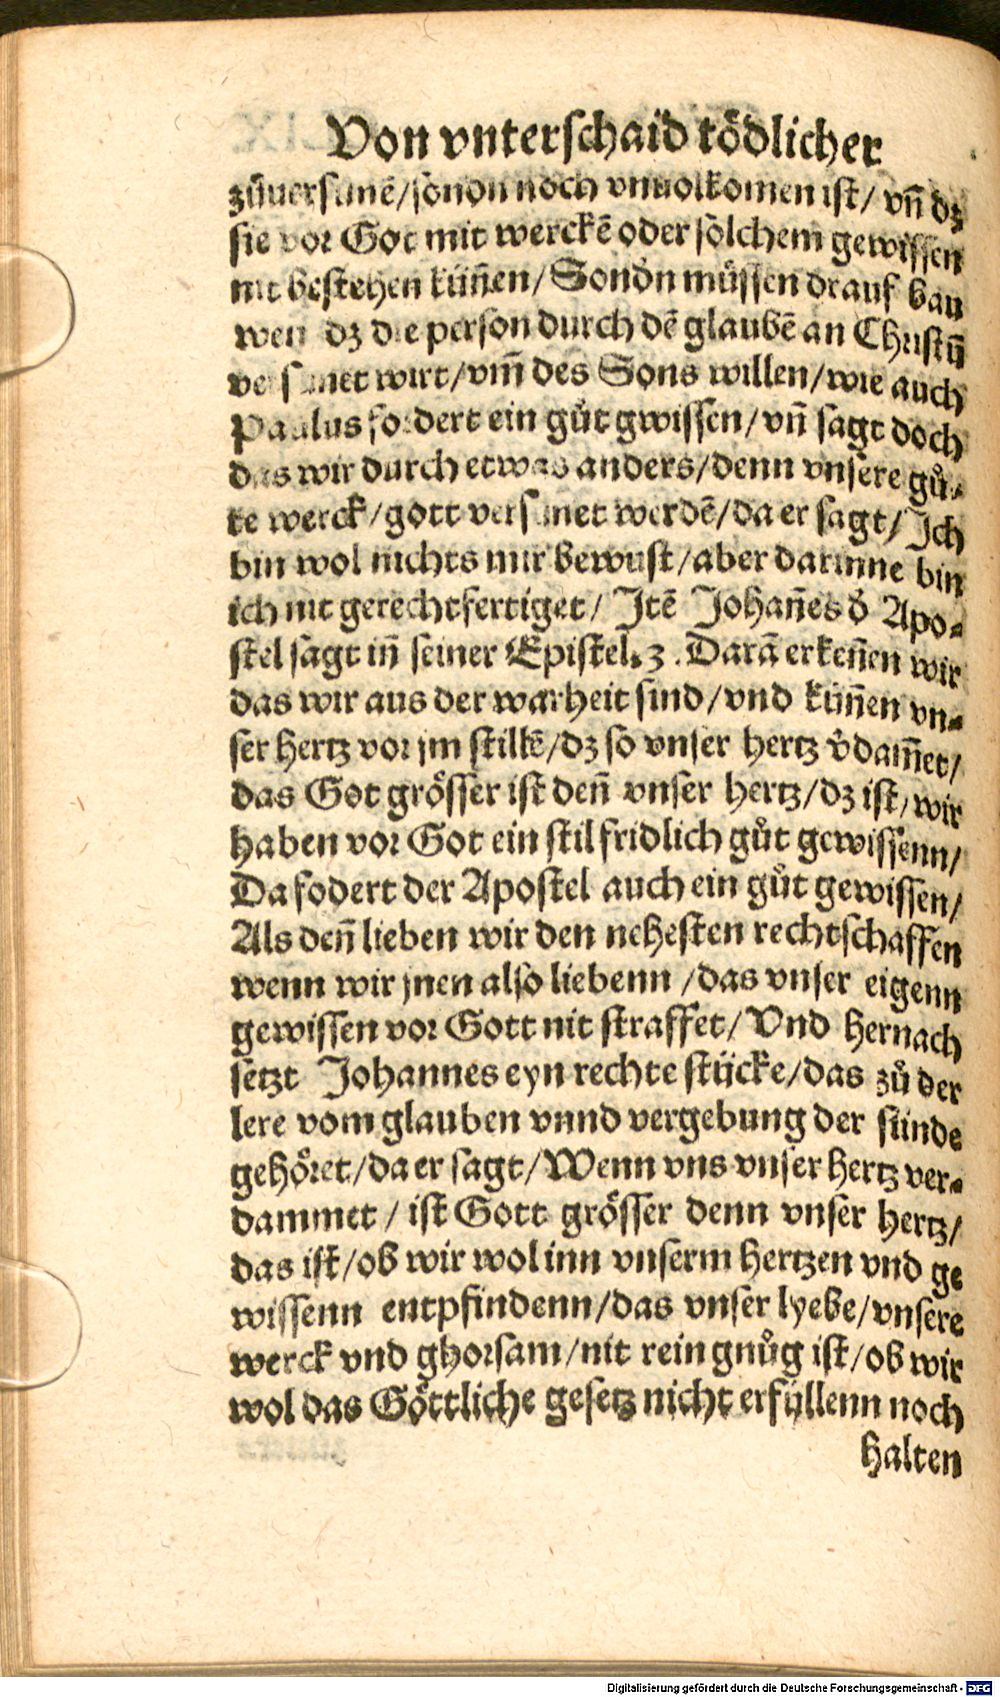 Von vnterschaid tödlicher
zůuersünē/sonðn noch vnuolkomen ist/ vñ dz
sie vor Got mit werckē oder solchem gewissen
nit bestehen küñen/Sonðn müssen drauf bau
wen dz die person durch dē glaubē an Christū
versünet wirt/vm̄ des Sons willen/wie auch
Paulus fodert ein gůt gwissen/vñ sagt doch
das wir durch etwas anders/denn vnsere gů-
te werck/gott versünet werdē/da er sagt/Ich
bin wol nichts mir bewust/aber darinne bin
ich nit gerechtfertiget/ Itē Johañes ð Apo-
stel sagt iñ seiner Epistel.3.Darā erkeñen wir
das wir aus der warheit sind/vnd küñen vn-
ser hertz vor jm stillē/dz so vnser hertz v̄dam̄et/
das Got grösser ist deñ vnser hertz/dz ist/wir
haben vor Got ein stil fridlich gůt gewissenn/
Da fodert der Apostel auch ein gůt gewissen/
Als deñ lieben wir den nehesten rechtschaffen
wenn wir jnen also liebenn /das vnser eigenn
gewissen vor Gott nit straffet/ Vnd hernach
setzt Johannes eyn rechte stücke/das zů der
lere vom glauben vnnd vergebung der sünde
gehöret/da er sagt/Wenn vns vnser hertz ver-
dammet / ist Gott grösser denn vnser hertz/
das ist/ob wir wol inn vnserm hertzen vnd ge
wissenn entpfindenn/das vnser lyebe/vnsere
werck vnd ghorsam/nit rein gnůg ist/ob wir
wol das Göttliche gesetz nicht erfüllenn noch
halten
Digitalisierung gefördert durch die Deutsche Forschungsgemeinschaft - DFG